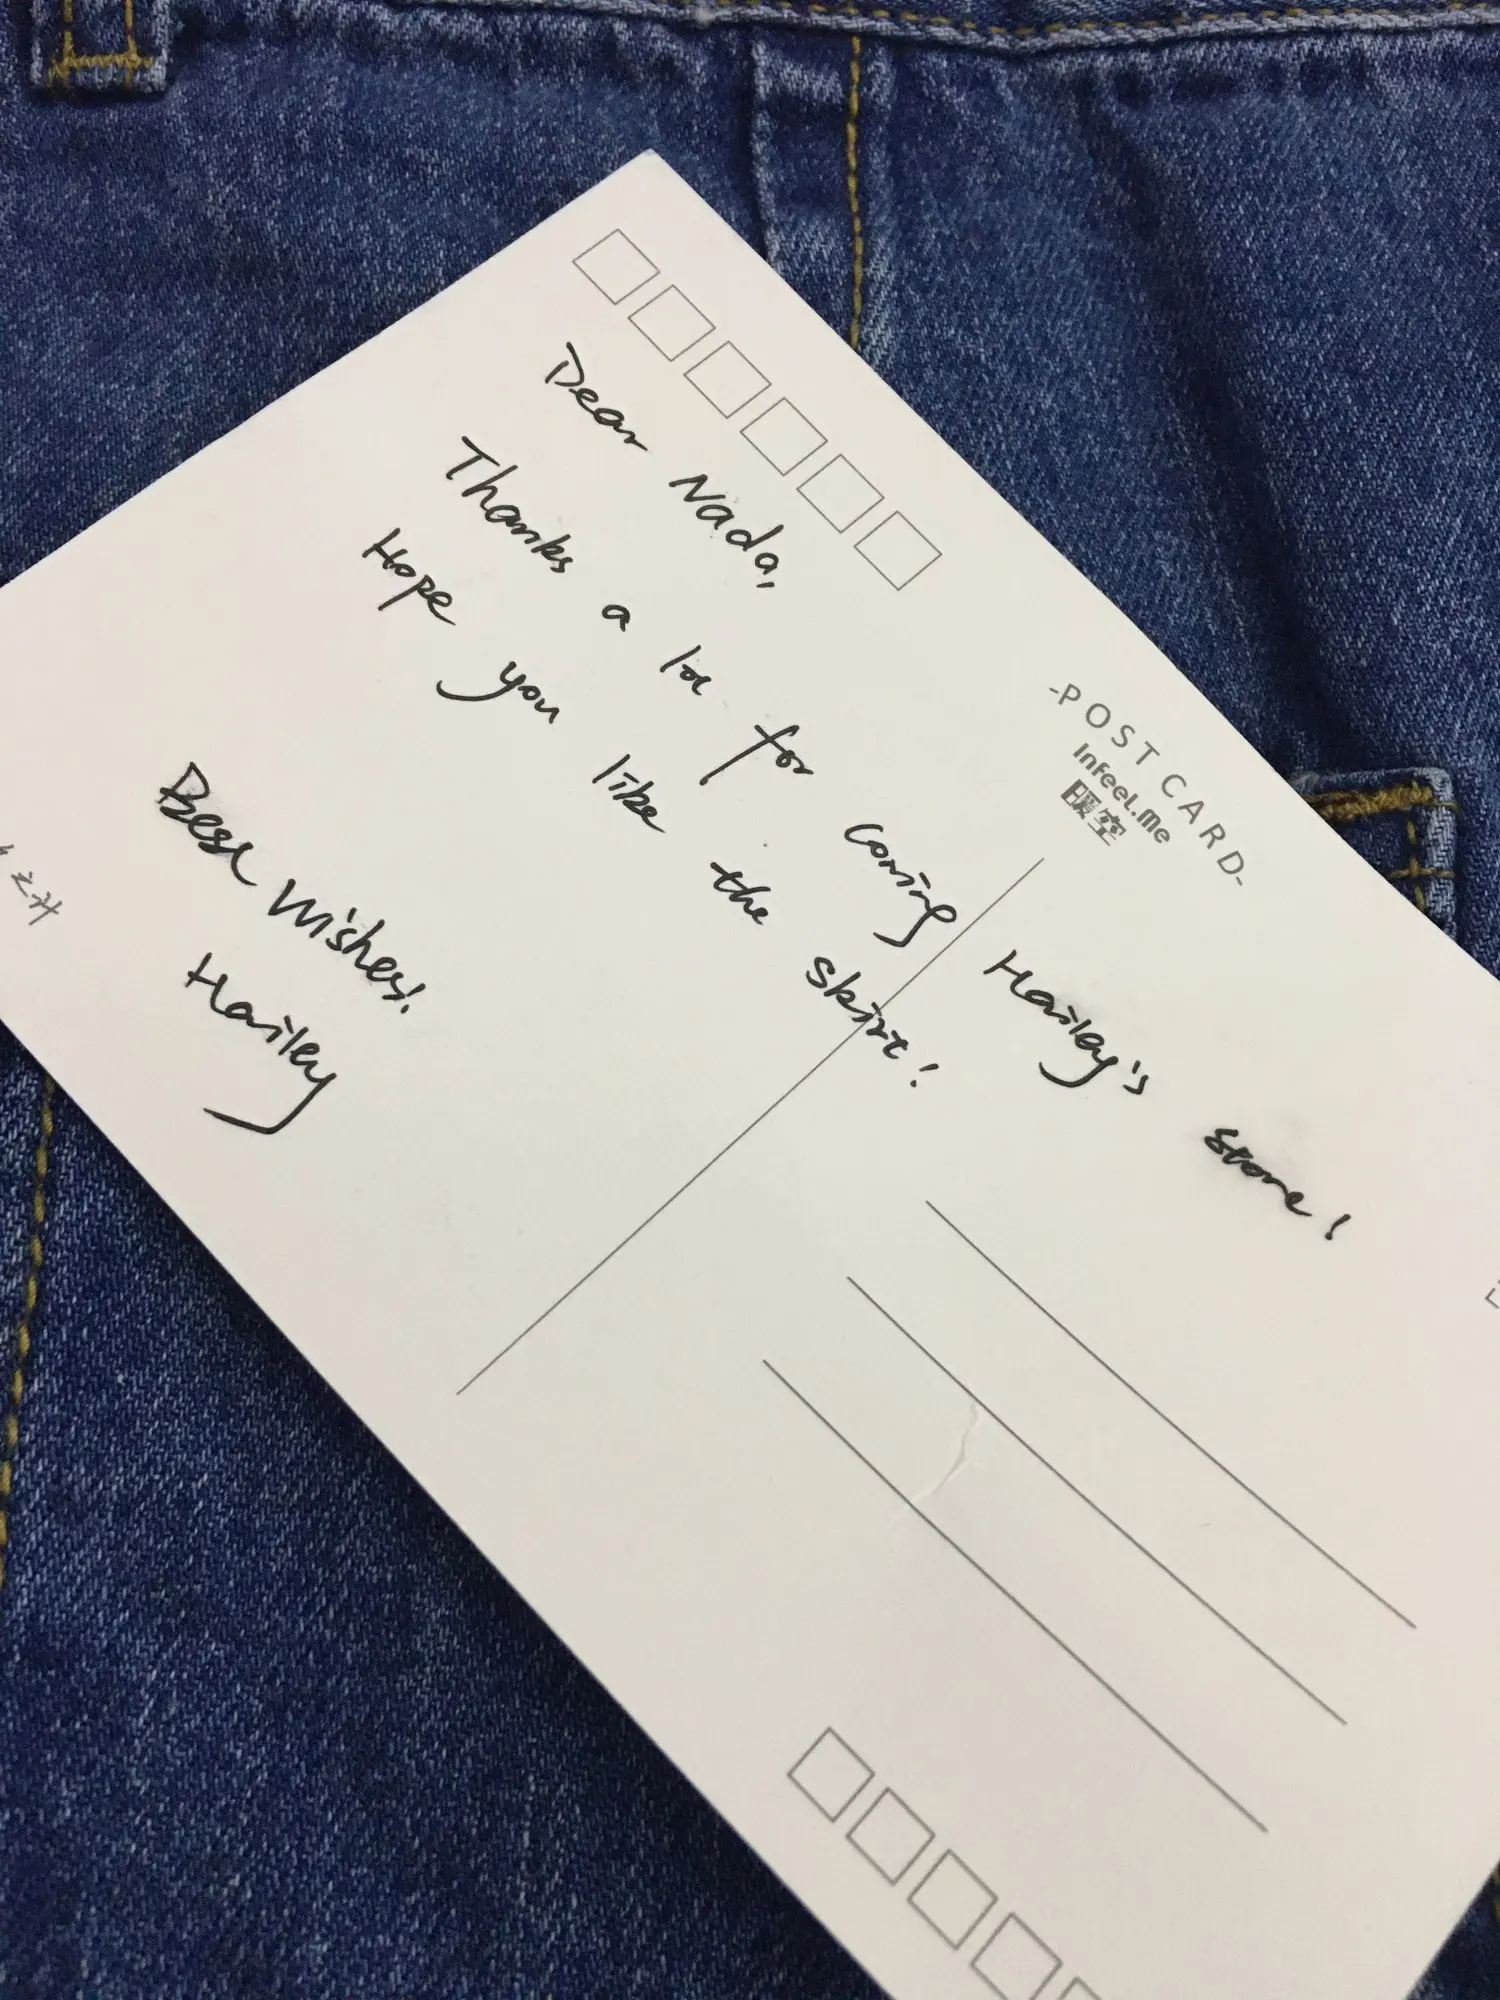 Dear Nada,
Thanks a lot for coming Hailey's store!
Hope you like the skirt!
Best wishes!
Hailey
-POSTCARD-
Infeel.me
暖空